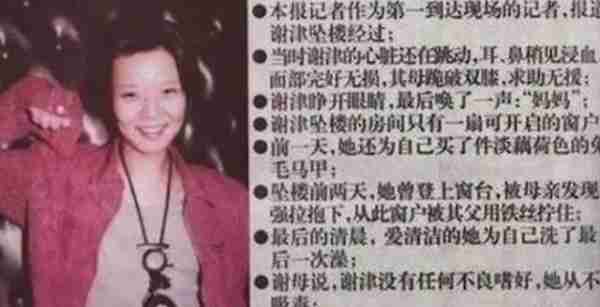 ●本报记者作为第一到达现场的记者,报道
谢津坠楼经过;
●当时谢津的心脏还在跳动,耳、鼻稍见浸血,
面部完好无损,其母跪破双膝,求助无援;
●谢津睁开眼睛,最后唤了一声:“妈妈”;
●谢津坠楼的房间只有一扇可开启的窗户
●前一天,她还为自己买了件淡藕荷色的兔
毛马甲;
●坠楼前两天,她曾登上窗台,被母亲发现
强拉抱下,从此窗户被其父用铁丝拧住;
●最后的清晨,爱清洁的她为自己洗了最
后一次澡;
●谢母说,谢津没有任何不良嗜好,她从不
吸毒;